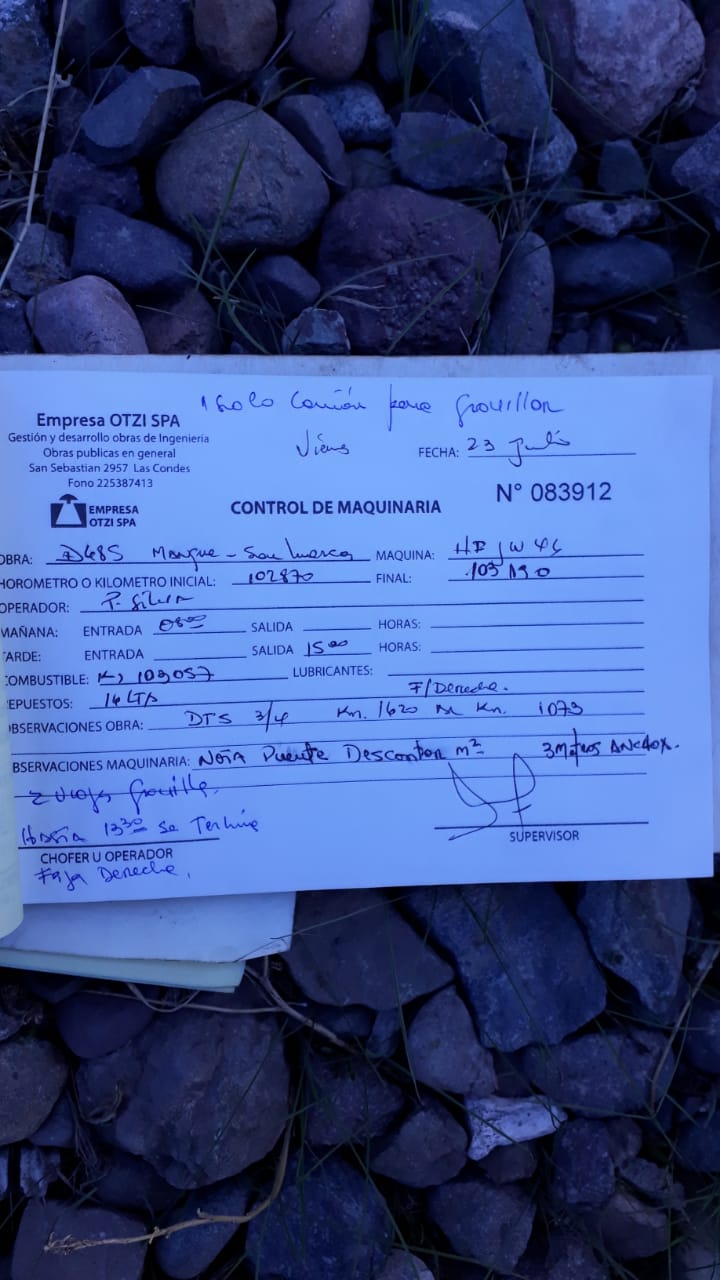 1 solo Camión para Gravillar
Empresa OTZI SPA
Gestión y desarrollo obras de Ingenieria
Obras publicas en general
San Sebastian 2957 Las Condes
Fono 225387413
FECHA: 23 Julio
EMPRESA
OTZI SPA
CONTROL DE MAQUINARIA
N° 083912
OBRA: D485 San Marcos MAQUINA:
HOROMETRO O KILOMETRO INICIAL: 102870 FINAL: 103190
OPERADOR: P. Silva
MAÑANA: ENTRADA 08:00 SALIDA HORAS:
TARDE: ENTRADA SALIDA 15:00 HORAS:
COMBUSTIBLE: LUBRICANTES:
REPUESTOS: F/Derecha.
OBSERVACIONES OBRA: DTS 3/4 Km. 1620 Al Km. 1073
OBSERVACIONES MAQUINARIA: Nota Puente Descontar m² 3 Metros
Hasta 13:30 Se Termino
SUPERVISOR
CHOFER U OPERADOR
Faja Derecha.